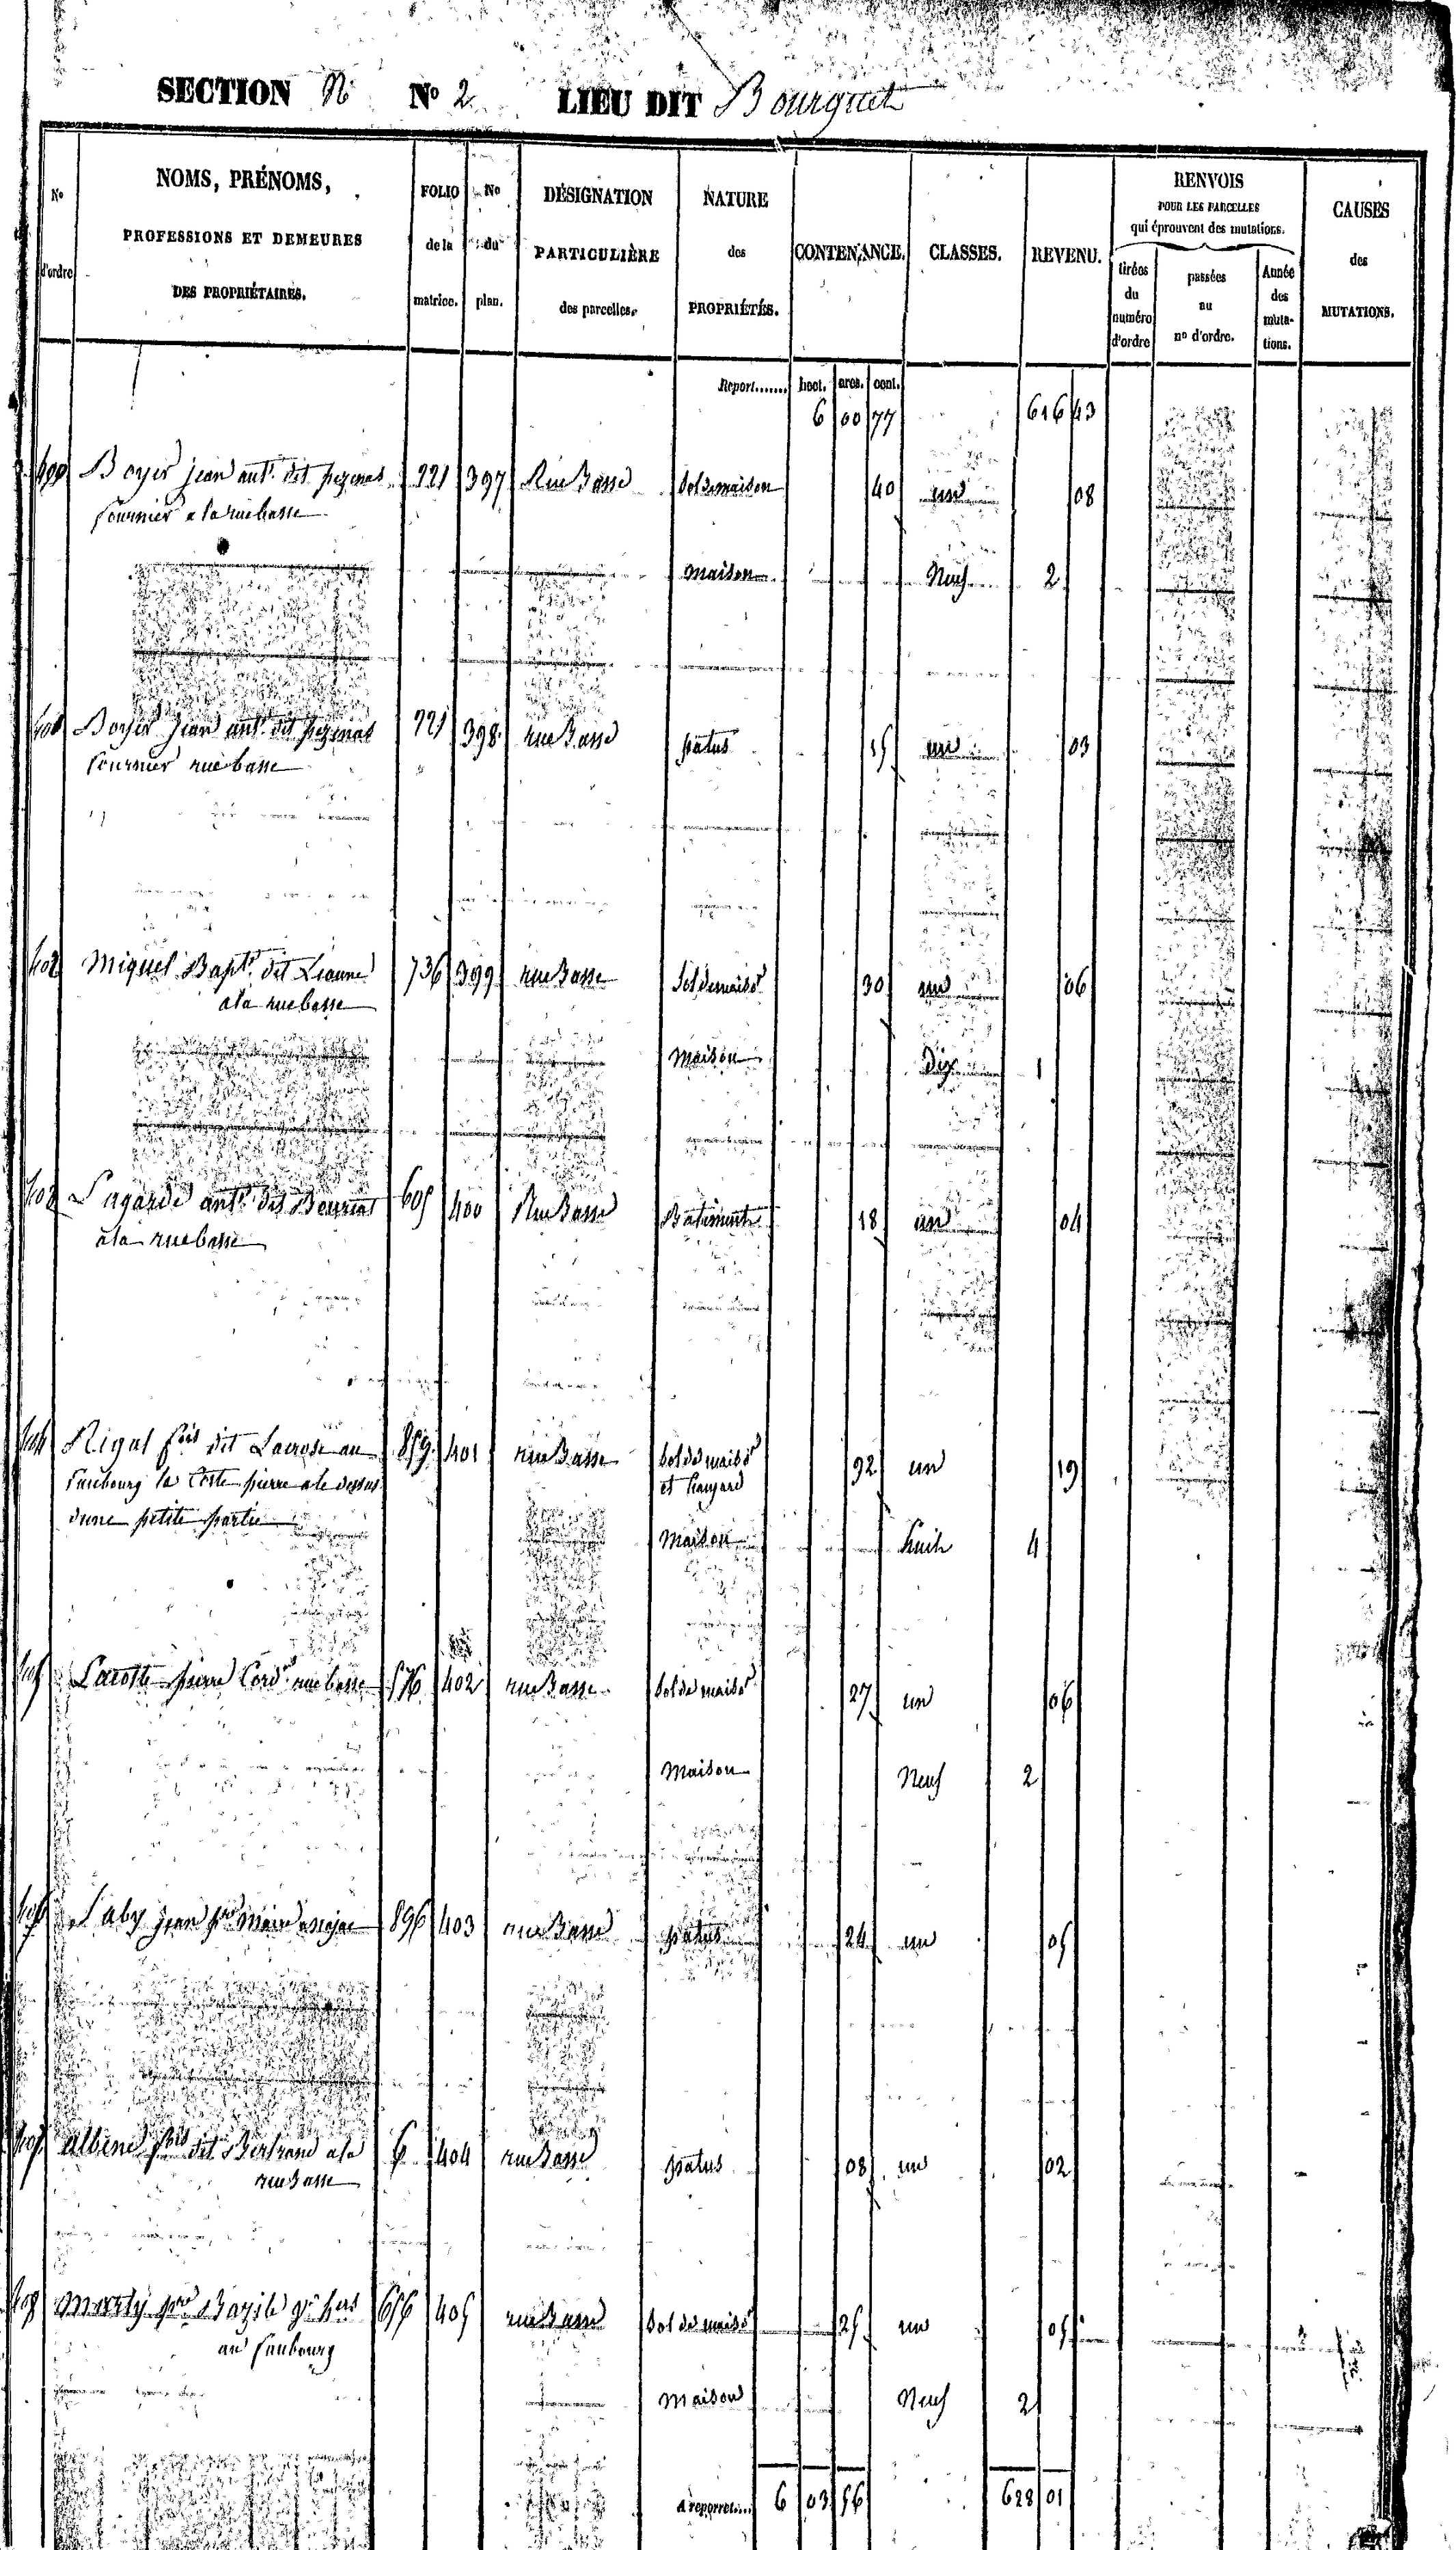 SECTION N No 2 LIEU DIT Bourguet
No d'ordre
NOMS, PRÉNOMS, PROFESSIONS ET DEMEURES DES PROPRIÉTAIRES.
FOLIO de la matrice.
No du plan.
DÉSIGNATION PARTICULIÈRE des parcelles.
NATURE des PROPRIÉTÉS.
CONTENANCE.
CLASSES.
REVENU.
RENVOIS POUR LES PARCELLES qui éprouvent des mutations.
tirées du numéro d'ordre
passées au no d'ordre.
Année des muta-tions.
CAUSES des MUTATIONS.
Report....... hect. ares. cent.
6 00 77 616 43
Boyer jean ant. dit pezenas 221 397 Rue Basse Sol de maison 40 un 08
fournier a la rue basse
Maison Neuf 2
Boyer jean ant. dit pezenas 221 398 rue Basse patus 15 un 03
fournier rue basse
402 Miquel Bapt. dit 736 399 rue Basse Sol de maisō 30 un 06
a la rue basse
Maison Dix 1
403 Lagarde ant. dit 605 400 Rue Basse Batiment 18 un 04
a la rue basse
404 Rigal fois dit Lacrose au 859 401 rue Basse Sol de maisō 92 un 19
faubourg la Coste pierre a le dessus et hangard
d'une petite partie
Maison huit 4
405 Lacoste pierre Cord. rue basse 576 402 rue Basse Sol de maisō 27 un 06
Maison Neuf 2
406 jean 896 403 rue Basse patus 24 un 05
407 Albene fois dit Bertrand a la 6 404 rue Basse patus 08 un 02
rue Basse
408 Marty Bazile 656 405 rue Basse Sol de maisō 25 un 05
au faubourg
Maison Neuf 2
A reporter.... 6 03 56 628 01